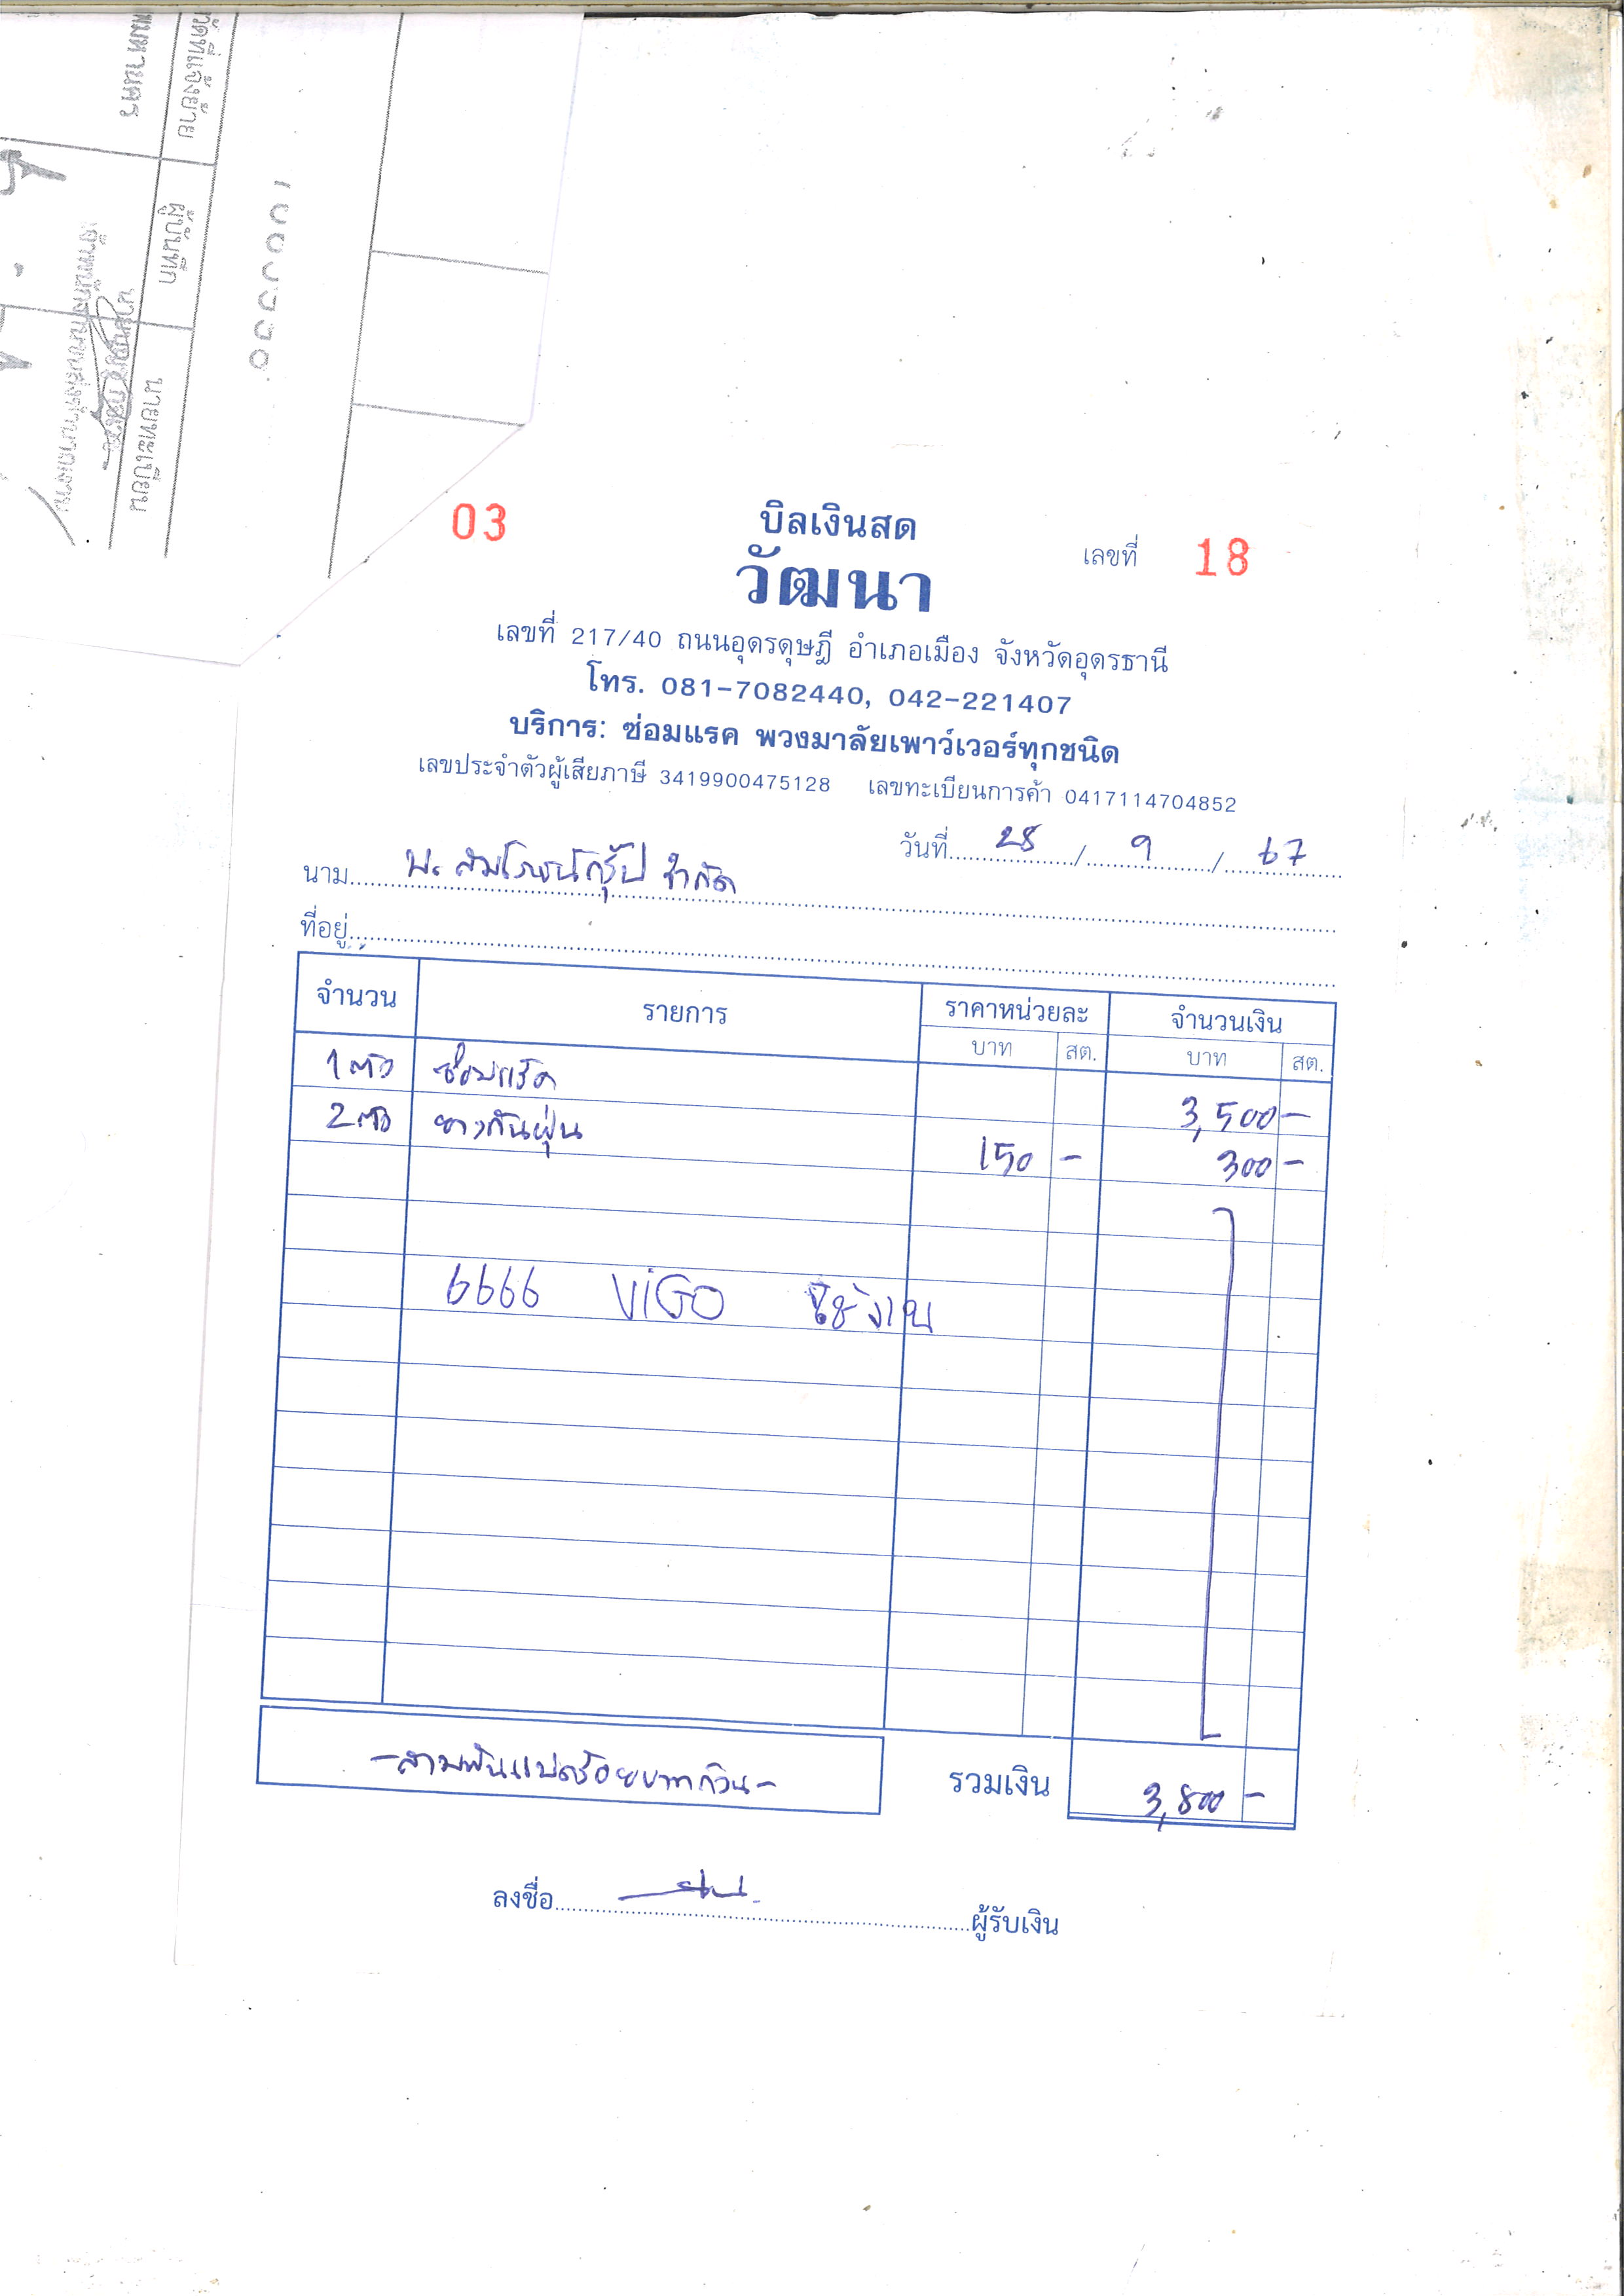 วัดที่แจ้งย้าย
ผู้บันทึก
นายทะเบียน
03
บิลเงินสด
วัฒนา
เลขที่ 18
เลขที่ 217/40 ถนนอุดรดุษฎี อำเภอเมือง จังหวัดอุดรธานี
โทร. 081-7082440, 042-221407
บริการ: ซ่อมแรค พวงมาลัยเพาว์เวอร์ทุกชนิด
เลขประจำตัวผู้เสียภาษี 3419900475128 เลขทะเบียนการค้า 0417114704852
วันที่ 28 / 9 / 67
นาม บ. สมโภชน์กรุ้ป จำกัด
ที่อยู่
จำนวน รายการ ราคาหน่วยละ จำนวนเงิน
บาท สต. บาท สต.
1 ตัว ซ่อมแร็ค 3,500 -
2 ตัว ยางกันฝุ่น 150 - 300 -
6666 ViGO ใช้งาน
-สามพันแปดร้อยบาทถ้วน- รวมเงิน 3,800 -
ลงชื่อ ผู้รับเงิน